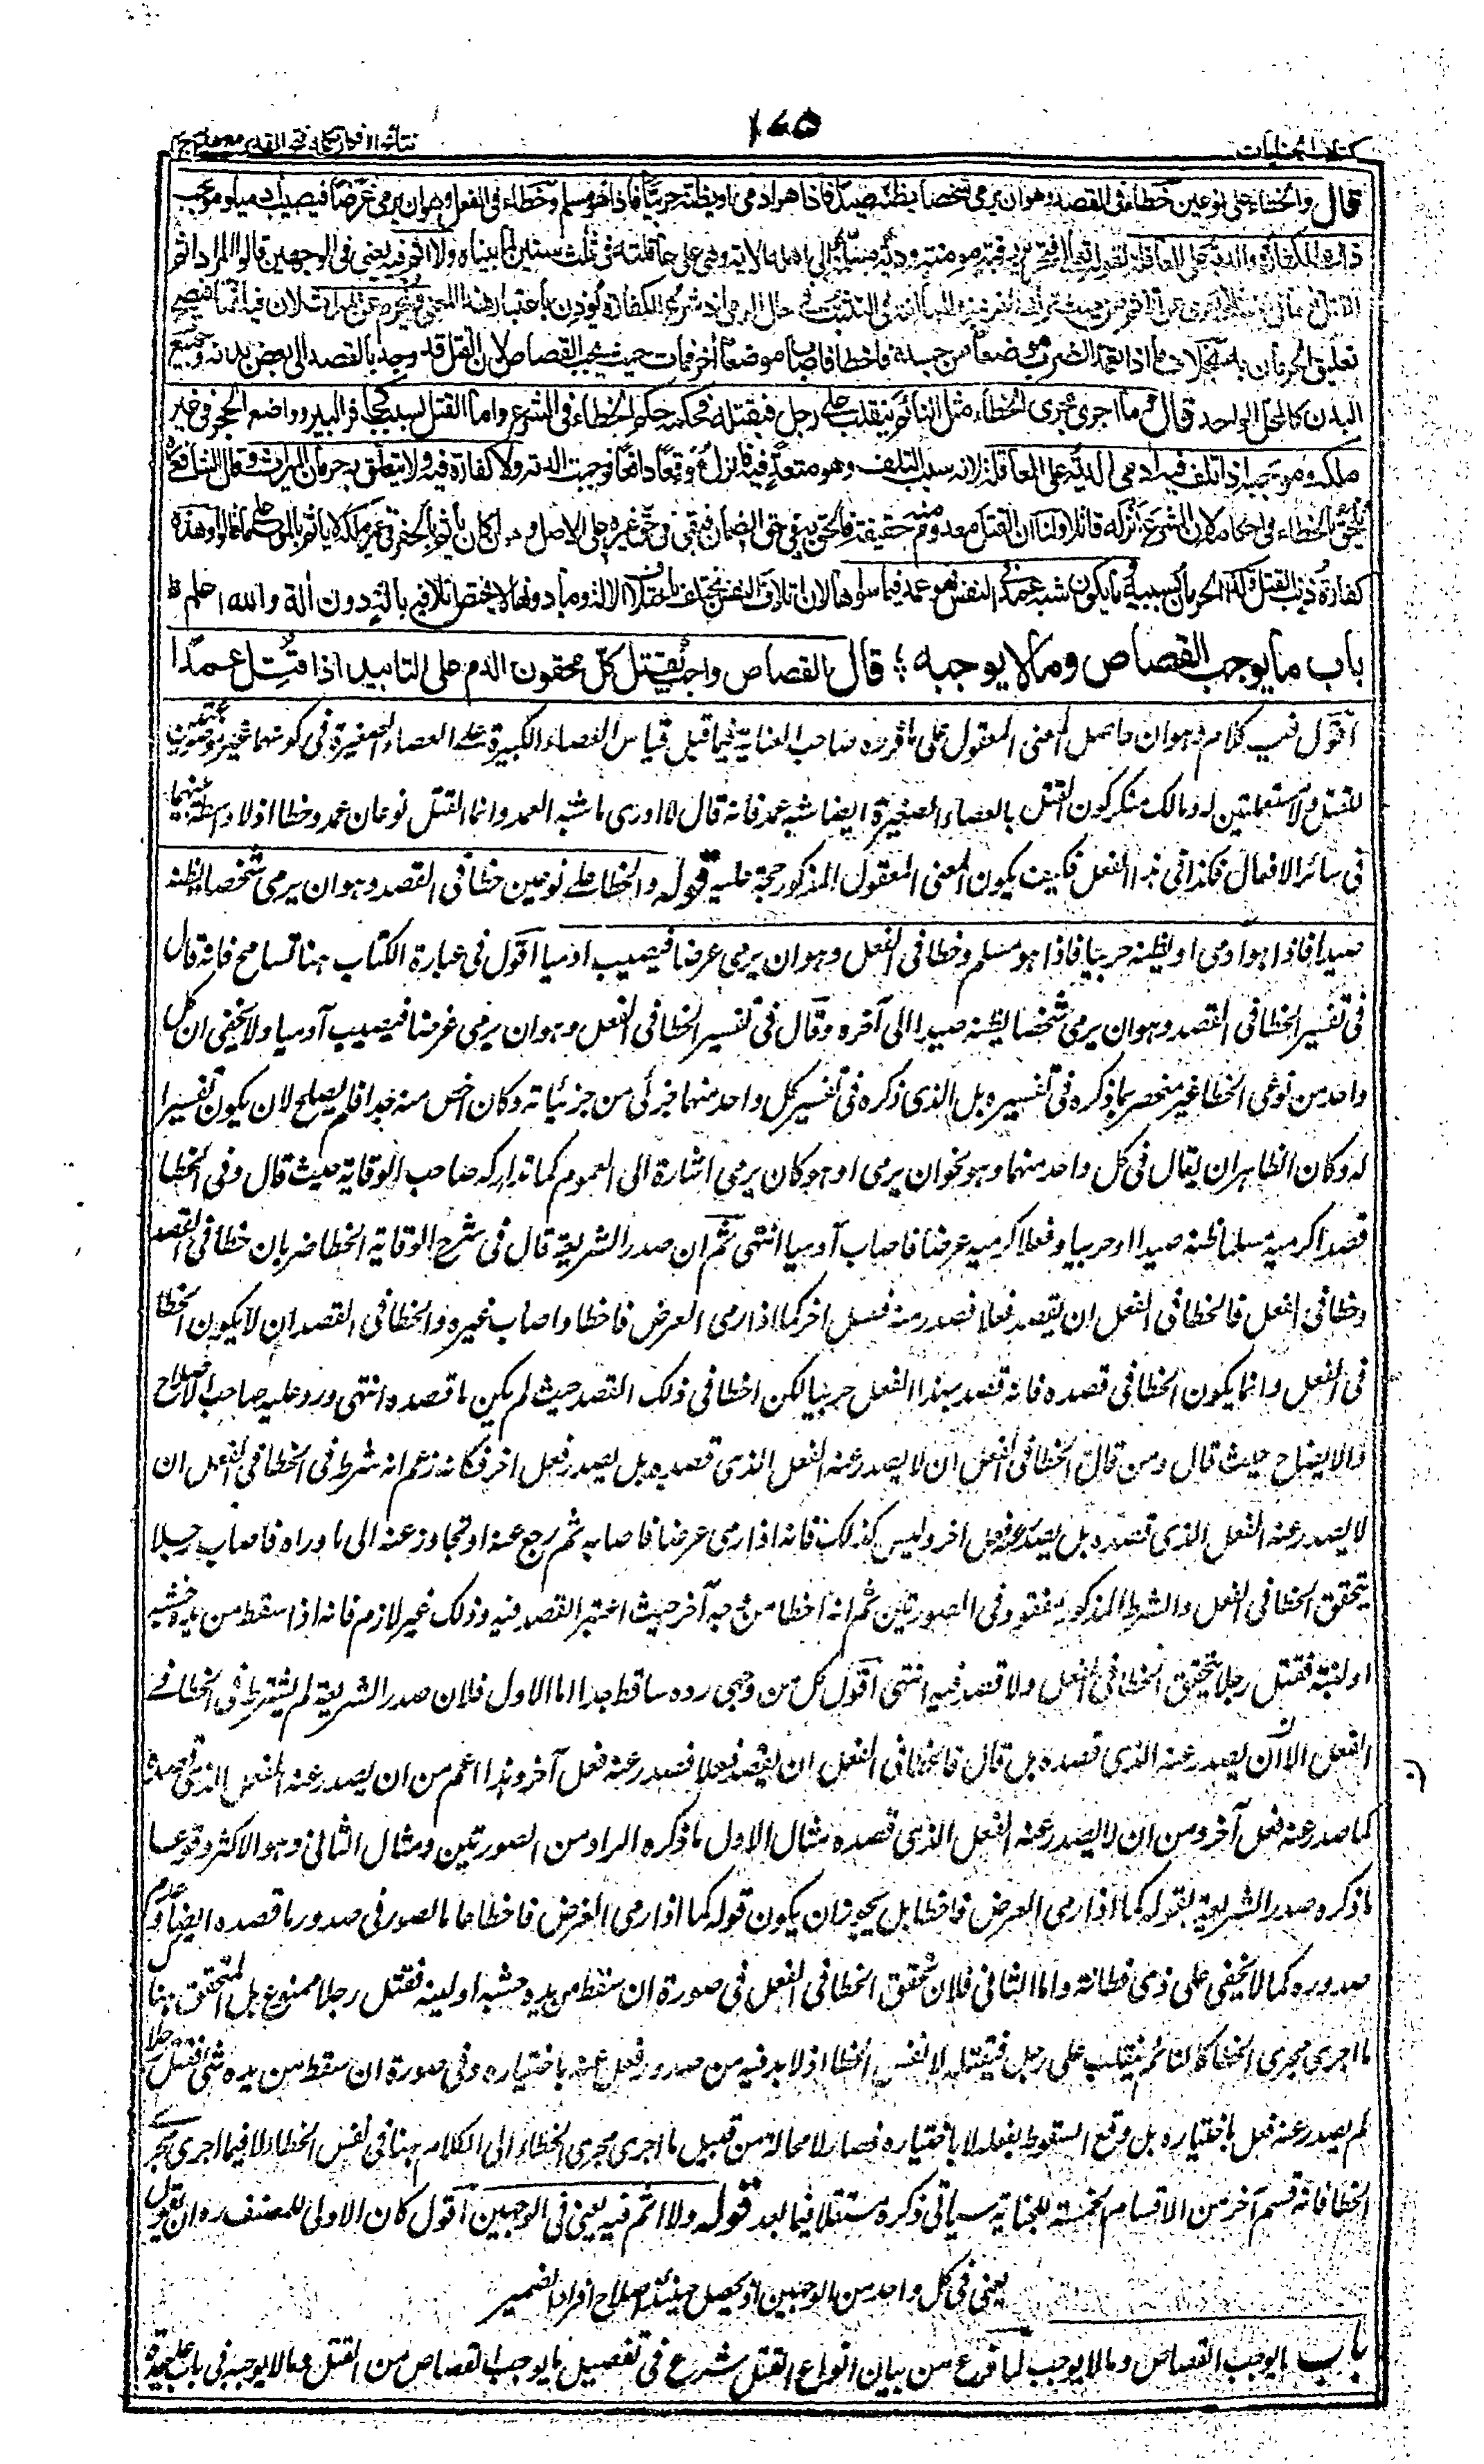 كتاب الجنايات
١٤٥
نتائج الافكار تكملة فتح القدير مع هداية ج
قال والخطاء على نوعين خطاء في القصد وهو ان يرمي شخصا يظنه صيدا فاذا هو ادمي او يظنه حربيا فاذا هو مسلم وخطاء في الفعل وهو ان يرمي غرضا فيصيب ادميا وموجب
ذلك الكفارة والدية على العاقلة لقوله تعالى فتحرير رقبة مؤمنة ودية مسلمة الى اهله الاية وهي على عاقلته في ثلث سنين لما بيناه ولا اثم فيه يعني في الوجهين قالوا المراد اثم
القتل فاما في نفسه فلا يعرى عن الاثم من حيث ترك العزيمة والمبالغة في التثبت في حال الرمي اذ شرع الكفارة يؤذن باعتبار هذا المعنى ويحرم عن الميراث لان فيه اثما فيصح
تعليق الحرمان به بخلاف ما اذا تعمد الضرب موضعا من جسده فاخطا فاصاب موضعا اخر فمات حيث يجب القصاص لان القتل قد وجد بالقصد الى بعض بدنه وجميع
البدن كالمحل الواحد قال وما اجري مجرى الخطاء مثل النائم ينقلب على رجل فيقتله فحكمه حكم الخطاء في الشرع واما القتل بسبب كحافر البير وواضع الحجر في غير
ملكه وموجبه اذا تلف فيه ادمي الدية على العاقلة لانه سبب التلف وهو متعد فيه فانزل موقعا دافعا فوجبت الدية ولا كفارة فيه ولا يتعلق به حرمان الميراث وقال الشافعي
يلحق بالخطاء في احكامه لان الشرع انزله قاتلا ولنا ان القتل معدوم منه حقيقة فالحق به في حق الضمان فبقي في حق غيره على الاصل وهو ان كان ياثم بالحفر في غير ملكه لا ياثم بالموت على ما قالوا وهذه
كفارة ذنب القتل وكذا الحرمان بسببه وما يكون شبه عمد في النفس فهو عمد فيما سواها لان اتلاف النفس يختلف باختلاف الالة وما دونها لا يختص اتلافه بالة دون الة والله اعلم
باب ما يوجب القصاص وما لا يوجبه ؛ قال القصاص واجب بقتل كل محقون الدم على التابيد اذا قتل عمدا
اقول فيه كلام وهو ان حاصل المعنى المعقول على ما قرره صاحب العناية فيما قبل قياس العصاء الكبيرة على العصاء الصغيرة في كونهما غير موضوعتين
للقتل ولا مستعملتين له ومالك منكر كون القتل بالعصاء الصغيرة ايضا شبه عمد فانه قال لا ادري ما شبه العمد وانما القتل نوعان عمد وخطا اذ لا واسطة بينهما
في سائر الافعال فكذا في هذا الفعل فكيف يكون المعنى المعقول المذكور حجة عليه قوله والخطا على نوعين خطا في القصد وهو ان يرمي شخصا يظنه
صيدا فاذا هو ادمي او يظنه حربيا فاذا هو مسلم وخطا في الفعل وهو ان يرمي غرضا فيصيب ادميا اقول في عبارة الكتاب هنا تسامح فانه قال
في تفسير الخطا في القصد وهو ان يرمي شخصا يظنه صيدا الى آخره وقال في تفسير الخطا في الفعل وهو ان يرمي غرضا فيصيب آدميا ولا يخفى ان كل
واحد من نوعي الخطا غير منحصر بما ذكره في تفسيره بل الذي ذكره في تفسير كل واحد منهما جزئي من جزئياته وكان اخص منه جدا فلم يصلح لان يكون تفسيرا
له وكان الظاهر ان يقال في كل واحد منهما وهو نحو ان يرمي او هو كان يرمي اشارة الى العموم كما تداركه صاحب الوقاية حيث قال وفي الخطا
قصدا كرميه مسلما ظنه صيدا او حربيا وفعلا كرميه غرضا فاصاب آدميا انتهى ثم ان صدر الشريعة قال في شرح الوقاية الخطا ضربان خطا في القصد
وخطا في الفعل فالخطا في الفعل ان يقصد فعلا فصدر منه فعل اخر كما اذا رمى الغرض فاخطا واصاب غيره والخطا في القصد ان لا يكون الخطا
في الفعل وانما يكون الخطا في قصده فانه قصد بهذا الفعل حربيا لكن اخطا في ذلك القصد حيث لم يكن ما قصده انتهى ورد عليه صاحب الاصلاح
والايضاح حيث قال ومن قال الخطا في الفعل ان لا يصدر عنه الفعل الذي قصده بل يصدر فعل اخر فكانه زعم انه شرط في الخطا في الفعل ان
لا يصدر عنه الفعل الذي قصده بل يصدر عنه فعل اخر وليس كذلك فانه اذا رمى غرضا فاصابه ثم رجع عنه او تجاوز عنه الى ما وراه فاصاب رجلا
يتحقق الخطا في الفعل والشرط المذكور مفقود في الصورتين ثم انه اخطا من وجه آخر حيث اعتبر القصد فيه وذلك غير لازم فانه اذا سقط من يده خشبة
او لبنة فقتل رجلا يتحقق الخطا في الفعل ولا قصد فيه انتهى اقول كل من وجهي رده ساقط جدا اما الاول فلان صدر الشريعة لم يشترط في الخطا في
الفعل ان لا يصدر عنه الذي قصده بل قال فالخطا في الفعل ان يقصد فعلا فصدر عنه فعل آخر وهذا اعم من ان يصدر عنه الفعل الذي قصده
كما صدر عنه فعل آخر ومن ان لا يصدر عنه الفعل الذي قصده مثال الاول ما ذكره الراد من الصورتين ومثال الثاني وهو الاكثر وقوعا
ما ذكره صدر الشريعة بقوله كما اذا رمى الغرض فاخطا بل يجوز ان يكون قوله كما اذا رمى الغرض فاخطا عاما لصورتي صدور ما قصده ايضا وعدم
صدوره كما لا يخفى على ذي فطانة واما الثاني فلان تحقق الخطا في الفعل في صورة ان سقط من يده خشبة او لبنة فقتل رجلا ممنوع بل المتحقق هنا
ما اجري مجرى الخطا كالنائم ينقلب على رجل فيقتله لا نفس الخطا اذ لا بد فيه من صدور فعل عنه باختياره وفي صورة ان سقط من يده شئ فقتل رجلا
لم يصدر عنه فعل باختياره بل وقع السقوط بفعله لا باختياره فصار لا محالة من قبيل ما اجري مجرى الخطاء الى الكلام هنا في نفس الخطا لا فيما اجري مجرى
الخطا فانه قسم آخر من الاقسام الخمسة للجناية سياتي ذكره مستقلا فيما بعد قوله ولا اثم فيه يعني في الوجهين اقول كان الاولى للمصنف ره ان يقول
يعني في كل واحد من الوجهين اذ يحصل حينئذ اصلاح افراد الضمير
باب ما يوجب القصاص وما لا يوجب لما فرغ من بيان انواع القتل شرع في تفصيل ما يوجب القصاص من القتل وما لا يوجبه في باب عليحدة